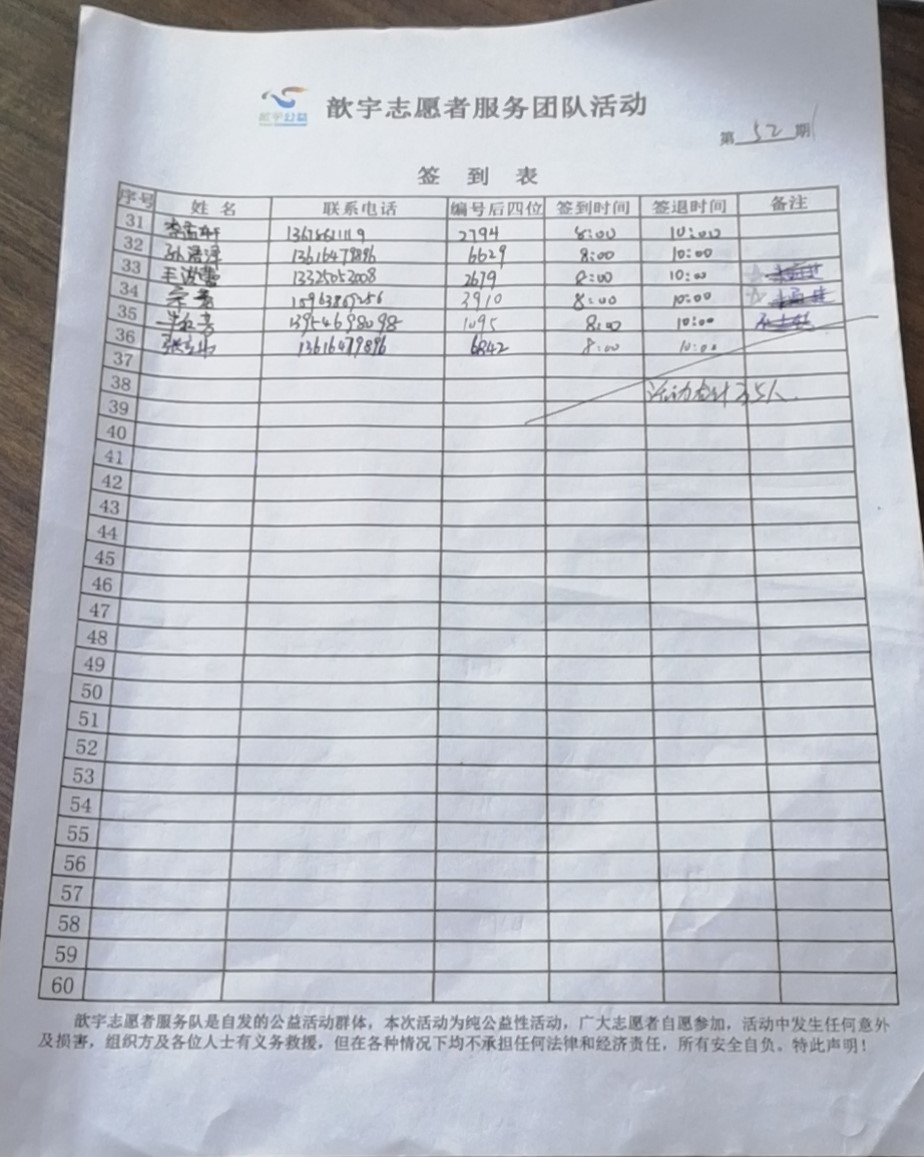 歆宇公益
歆宇志愿者服务团队活动
第 52 期
签 到 表
序号 姓 名 联系电话 编号后四位 签到时间 签退时间 备注
31 2794 8:00 10:00
32 13616479896 6629 8:00 10:00
33 王波 13325052008 2679 8:00 10:00
34 15963869256 3910 8:00 10:00
35 13954698098 1095 8:00 10:00
36 13616479896 6842 8:00 10:00
37
38 活动合计35人.
39
40
41
42
43
44
45
46
47
48
49
50
51
52
53
54
55
56
57
58
59
60
歆宇志愿者服务队是自发的公益活动群体，本次活动为纯公益性活动，广大志愿者自愿参加，活动中发生任何意外
及损害，组织方及各位人士有义务救援，但在各种情况下均不承担任何法律和经济责任，所有安全自负。特此声明！